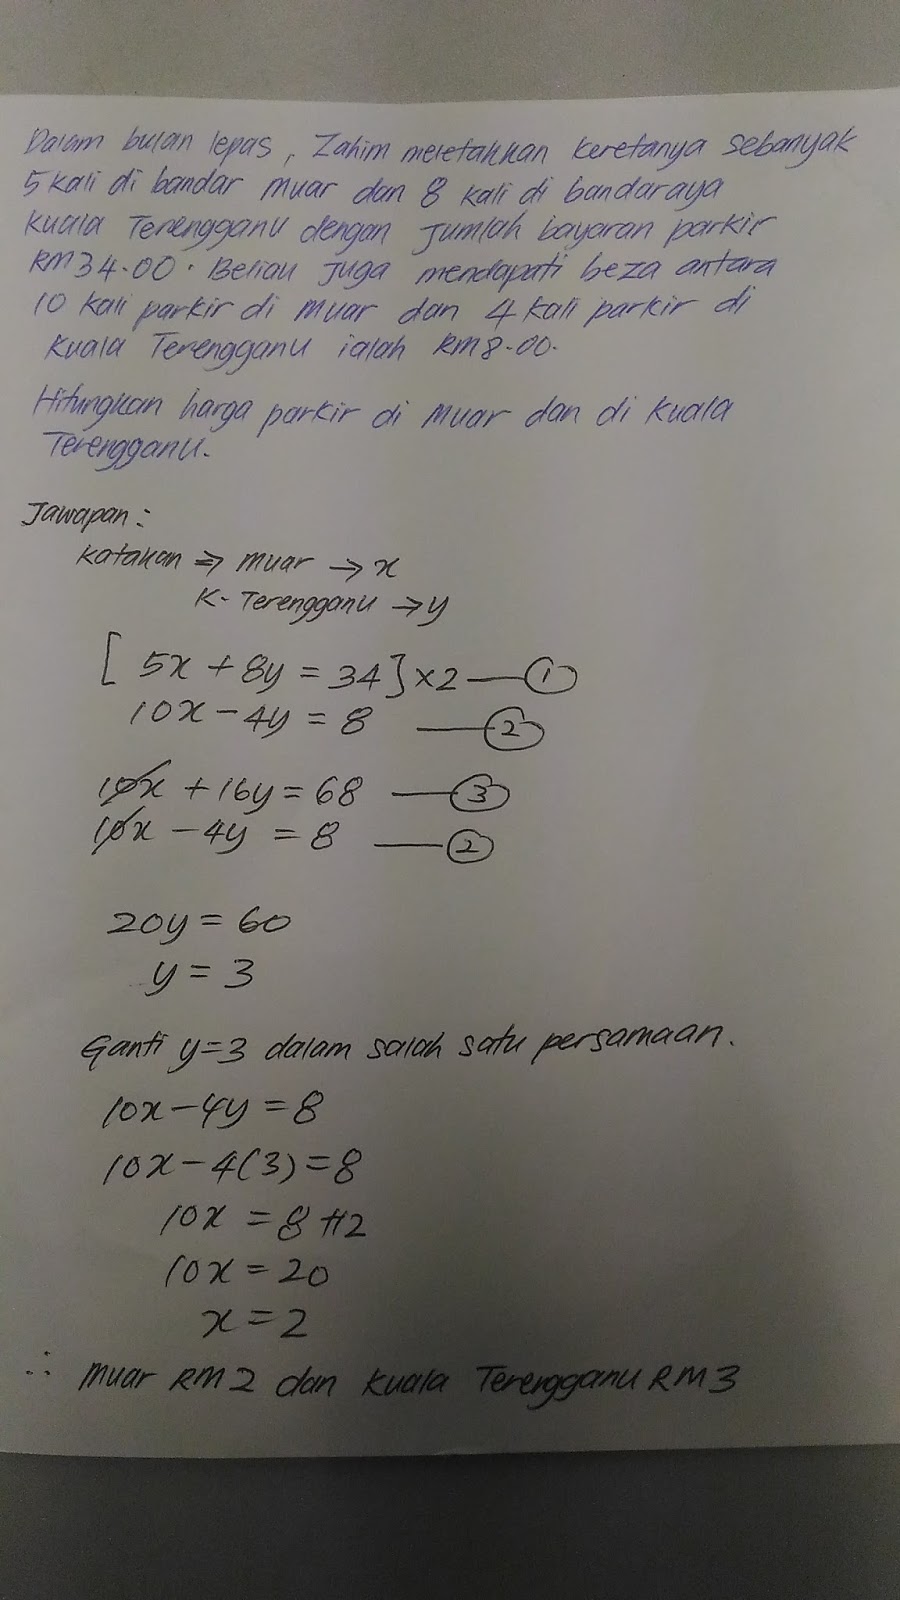 Dalam bulan lepas, Zahim meletakkan keretanya sebanyak
5 kali di bandar muar dan 8 kali di bandaraya
Kuala Terengganu dengan jumlah bayaran parkir
RM34.00. Beliau juga mendapati beza antara
10 kali parkir di muar dan 4 kali parkir di
Kuala Terengganu ialah RM8.00.
Hitungkan harga parkir di muar dan di Kuala
Terengganu.
Jawapan :
Katakan ⇒ muar → x
K. Terengganu → y
[ 5x + 8y = 34 ] × 2 — ①
10x - 4y = 8 — ②
10x + 16y = 68 — ③
10x - 4y = 8 — ②
20y = 60
y = 3
Ganti y=3 dalam salah satu persamaan.
10x - 4y = 8
10x - 4(3) = 8
10x = 8 +12
10x = 20
x = 2
∴ Muar RM2 dan Kuala Terengganu RM3